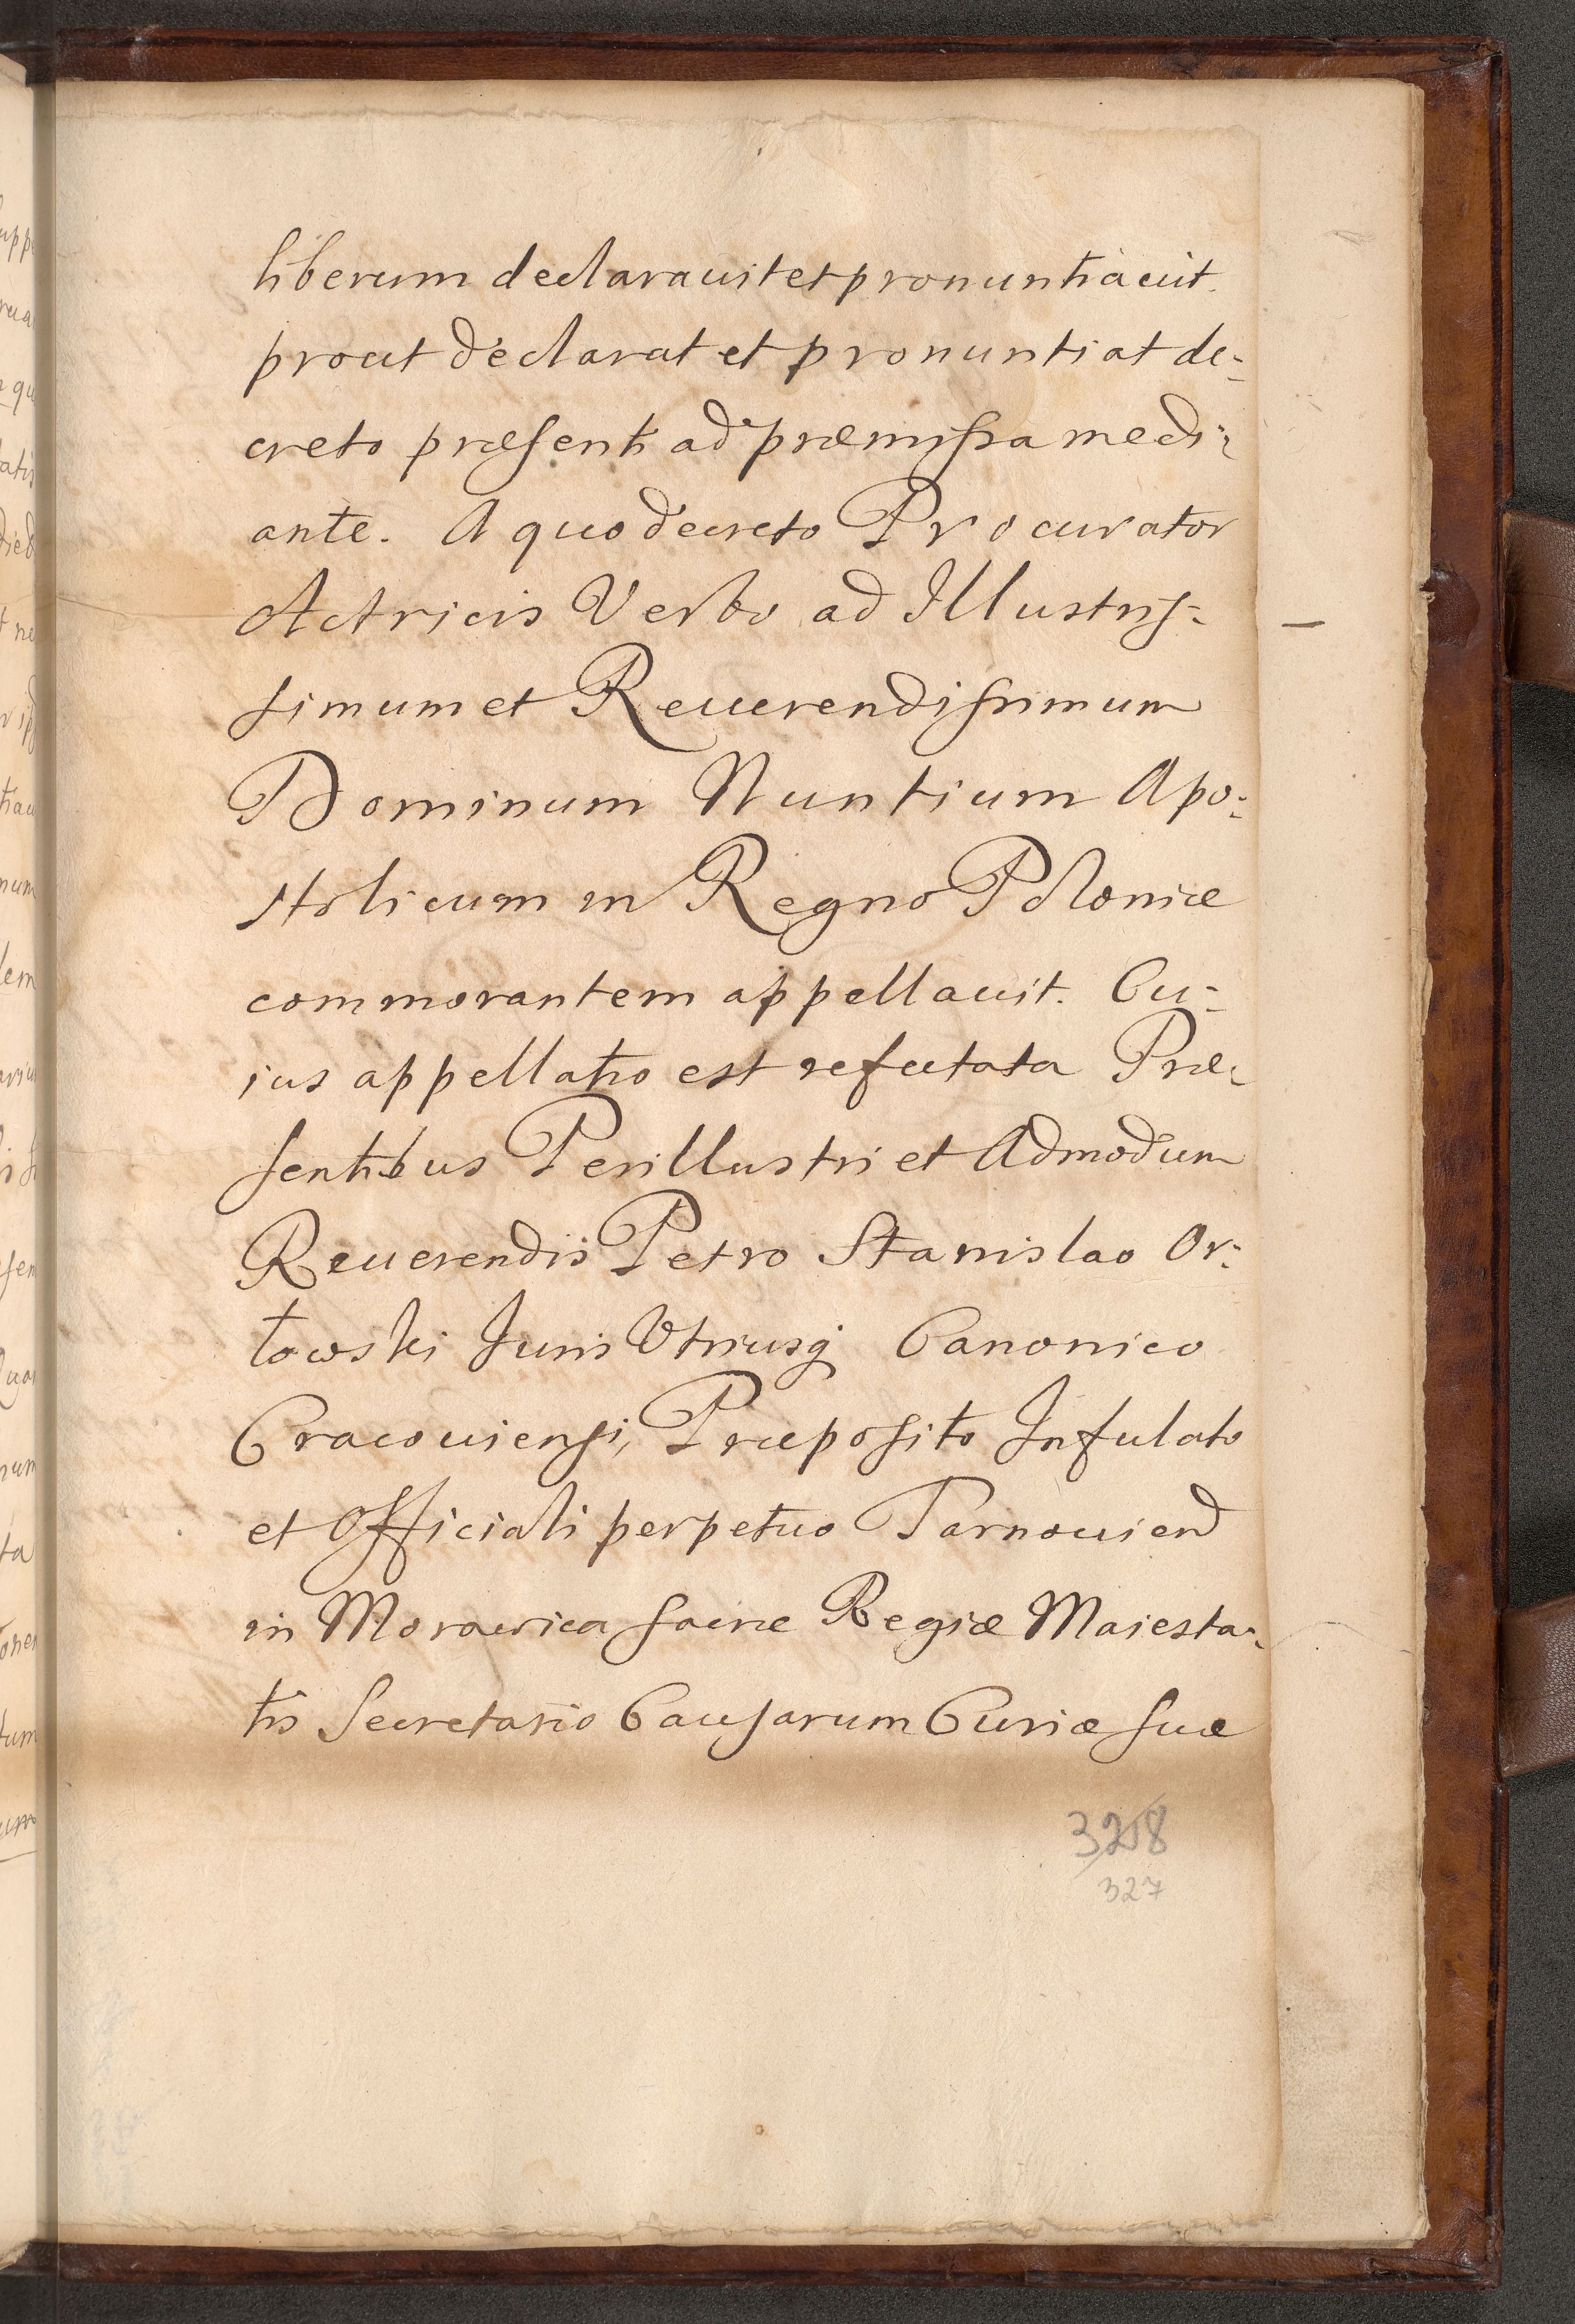 liberum declarauit et pronuntiauit.
prout declarat et pronuntiat de-
creto præsenti ad præmissa medi-
ante. A quo decreto Procurator
Actricis Verbo ad Illustris-
simum et Reuerendissimum
Dominum Nuntium Apo-
stolicum in Regno Poloniæ
commorantem appellauit. Cu-
ius appellatio est refutata Præ-
sentibus Perillustri et Admodum
Reuerendis Petro Stanislao Or-
łowski Juris Vtriusq Canonico
Cracouiensi, Præposito Infulato
et Officiali perpetuo Tarnouien
in Morawica Sacræ Regiæ Maiesta-
tis Secretario Causarum Curiæ suæ
328
327